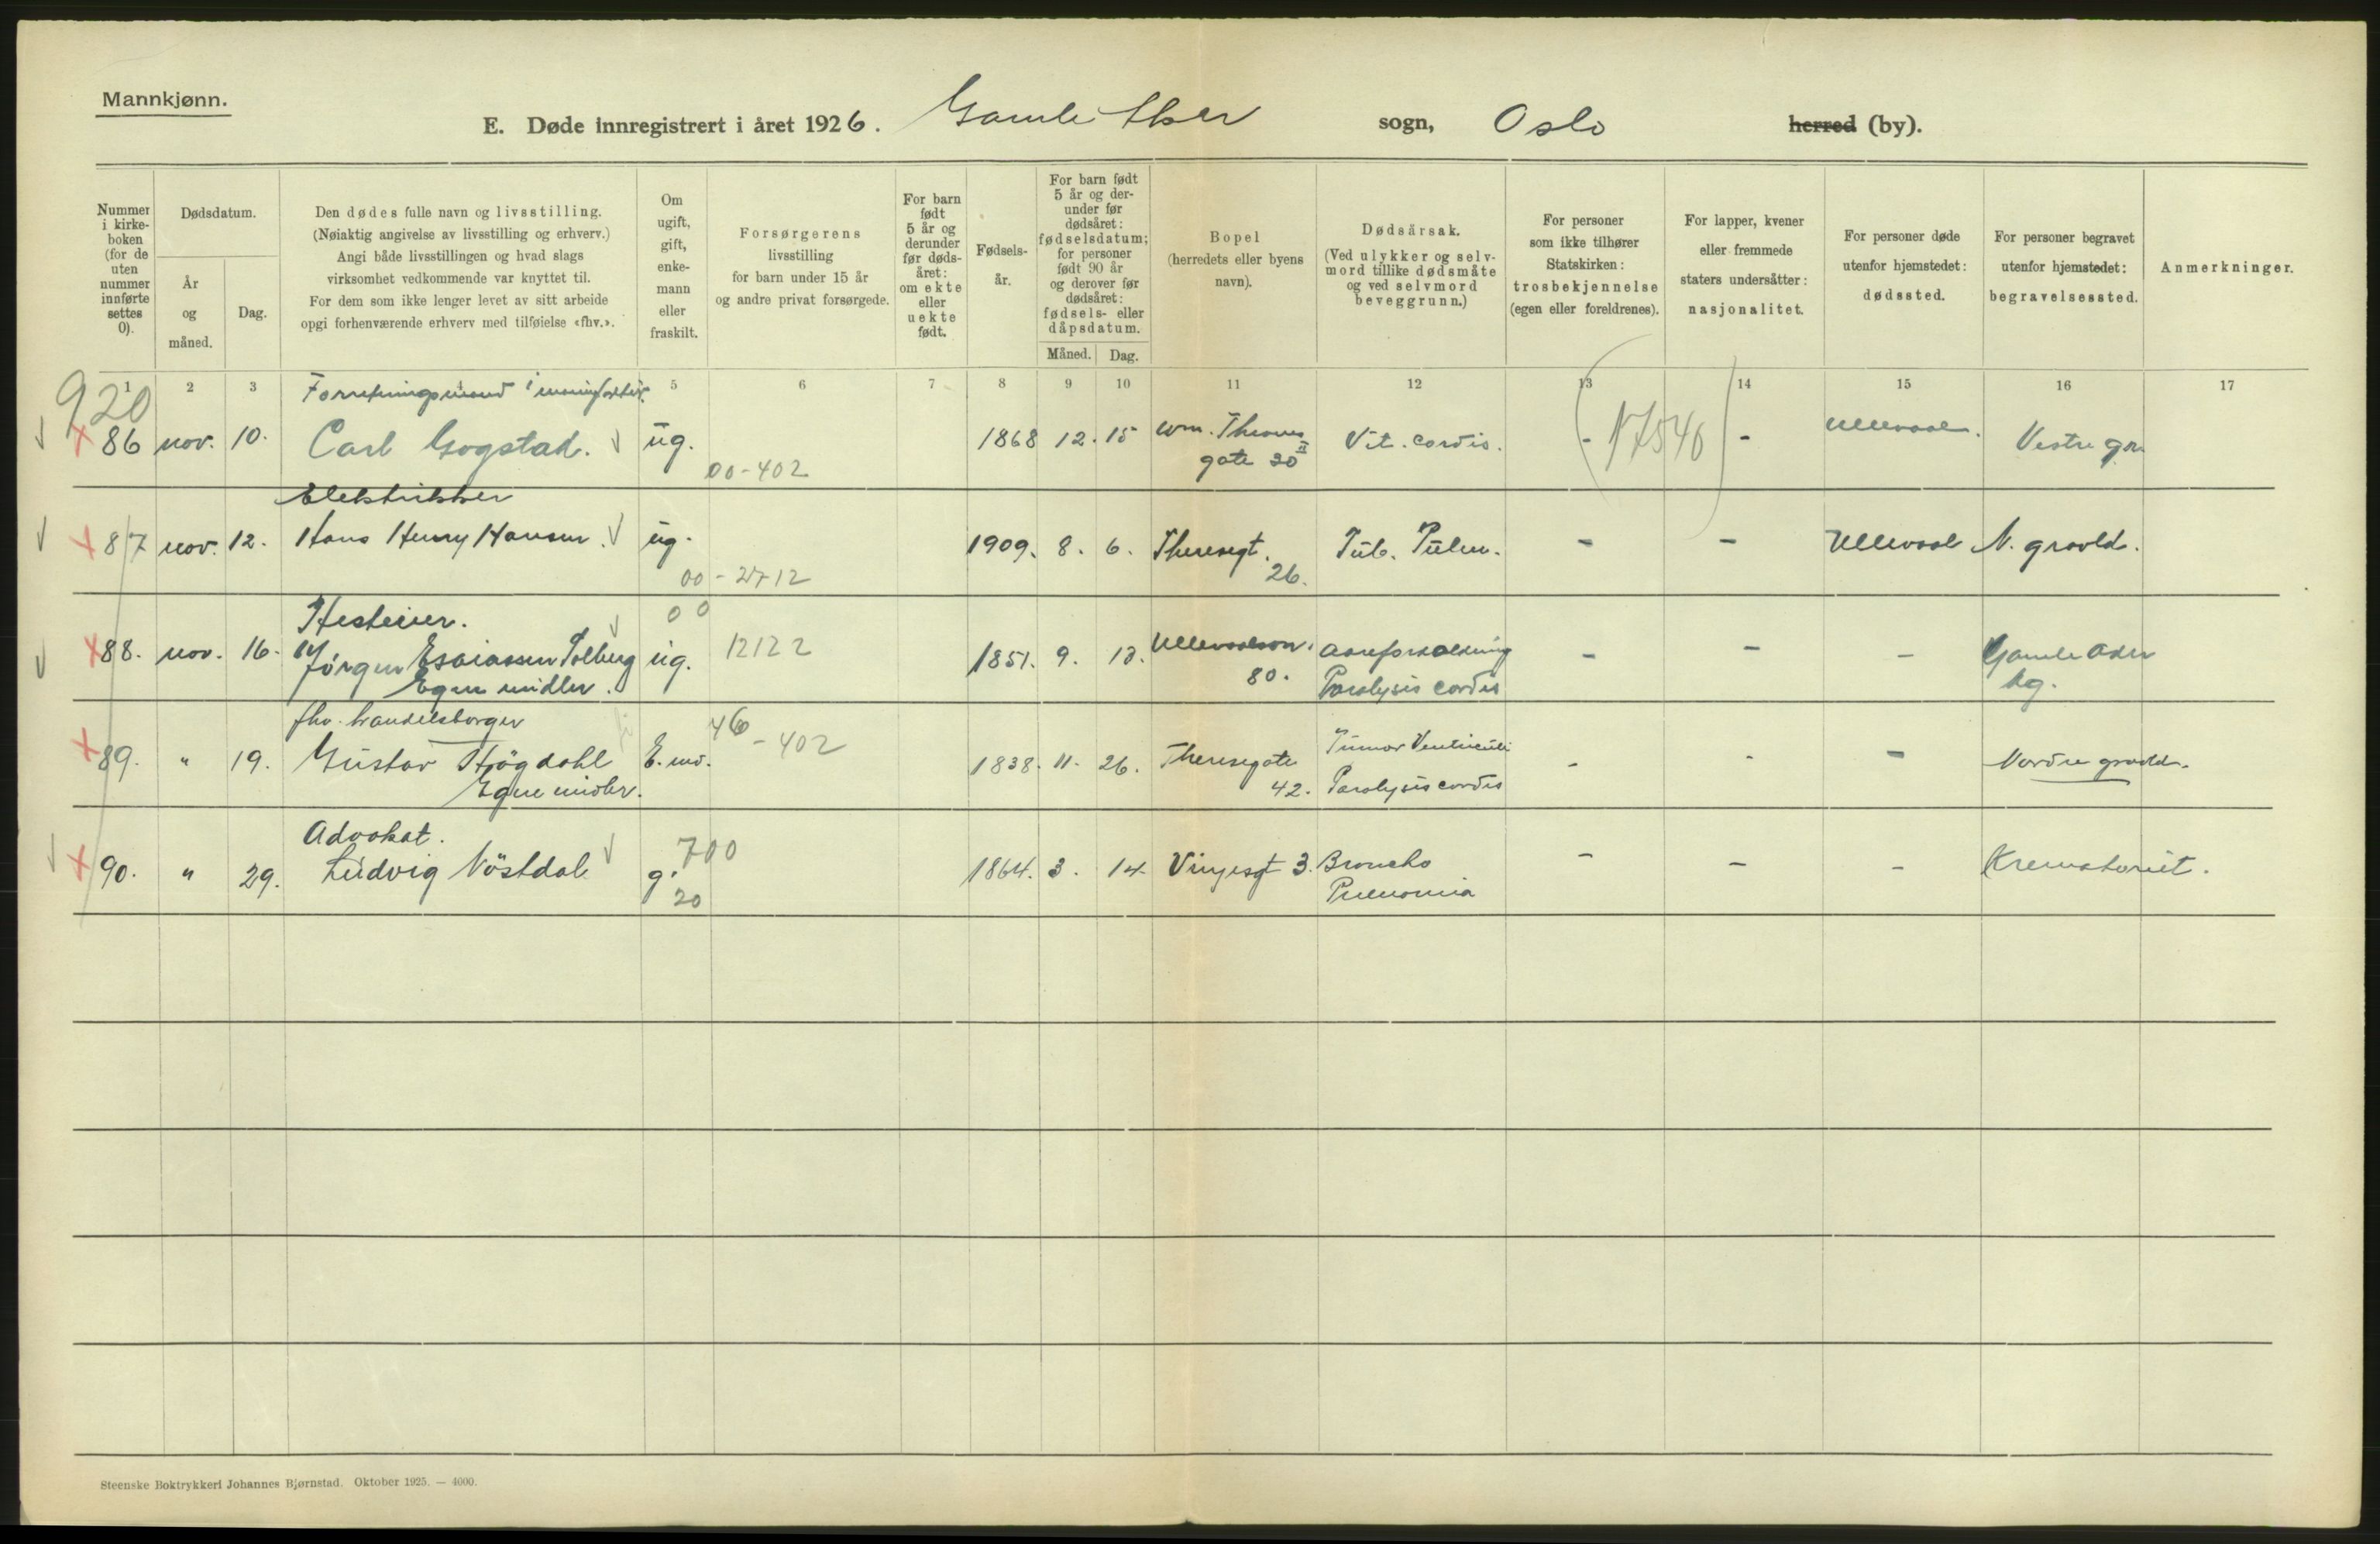 Mannkjønn.
E. Døde innregistrert i året 1926. Gamle Aker sogn, Oslo herred (by).
Nummer i kirkeboken (for de uten nummer innførte settes 0).
Dødsdatum.
År og måned.
Dag.
Den dødes fulle navn og livsstilling.
(Nøiaktig angivelse av livsstilling og erhverv.)
Angi både livsstillingen og hvad slags
virksomhet vedkommende var knyttet til.
For dem som ikke lenger levet av sitt arbeide
opgi forhenværende erhverv med tilføielse «fhv.».
Om ugift, gift, enkemann eller fraskilt.
Forsørgerens livsstilling for barn under 15 år og andre privat forsørgede.
For barn født 5 år og derunder før dødsåret: om ekte eller uekte født.
Fødselsår.
For barn født 5 år og derunder før dødsåret: fødselsdatum; for personer født 90 år og derover før dødsåret: fødsels- eller dåpsdatum.
Måned. Dag.
Bopel (herredets eller byens navn).
Dødsårsak.
(Ved ulykker og selvmord tillike dødsmåte og ved selvmord beveggrunn.)
For personer som ikke tilhører Statskirken: trosbekjennelse (egen eller foreldrenes).
For lapper, kvener eller fremmede staters undersåtter: nasjonalitet.
For personer døde utenfor hjemstedet: dødssted.
For personer begravet utenfor hjemstedet: begravelsessted.
Anmerkninger.
1 2 3 4 5 6 7 8 9 10 11 12 13 14 15 16 17
920
Forretningsmand
86 nov. 10. Carl Gogstad. ug. 00-402 1868 12. 15 Wm. Thranes gate 30 II Vit. cordis. - 17540 - Ullevaal. Vestre gr.
Elektrikker
87 nov. 12. Hans Henry Hansen. ug. 00-2712 1909. 8. 6. Theresegt. 26. Tub. Pulm. - - Ullevaal N. gravld.
Hesteeier.
88. nov. 16. Jørgen Esaiassen Solberg ug. 00 12122 1851. 9. 13. Ullevaalsvn. 80. Aareforkalkning - - - Gamle Aker
Egne midler. Paralysis cordis kg.
fhv. handelsborger
89. " 19. Gustav Högdahl E.md. 46-402 1838. 11. 26. Theresegate 42. Tumor Ventriculi - - - Nordre gravld.
Egne midler. Paralysis cordis
Advokat.
90. " 29. Ludvig Nöstdal g. 700 20 1864. 3. 14. Vinjesgt 3. Broncho - - - Krematoriet.
Pneumonia
Steenske Boktrykkeri Johannes Bjørnstad. Oktober 1925. — 4000.